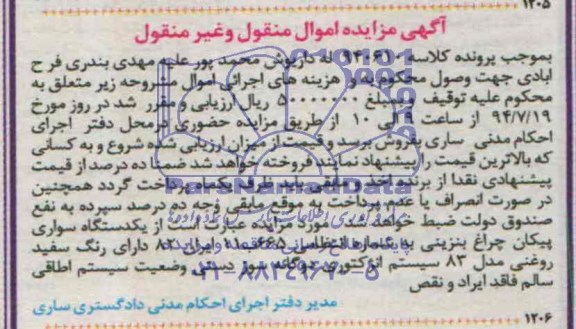 ۱۲۰۵
آگهی مزایده اموال منقول وغیر منقول
بموجب پرونده کلاسه ۹۴۰۶۱۰ له داریوش محمد پور علیه مهدی بندری فرح
ابادی جهت وصول محکوم به و هزینه های اجرائی اموال مشروحه زیر متعلق به
محکوم علیه توقیف و بمبلغ ۵۰۰۰۰۰۰۰ ریال ارزیابی و مقرر شد در روز مورخ
۹۴/۷/۱۹ از ساعت ۹ الی ۱۰ از طریق مزایده حضوری در محل دفتر اجرای
احکام مدنی ساری بفروش برسد و قیمت از میزان ارزیابی شده شروع و به کسانی
که بالاترین قیمت را پیشنهاد نمایند فروخته خواهد شد ضمنا ده درصد از قیمت
پیشنهادی نقدا از برنده اخذ و مابقی باید ظرف یکماه پرداخت گردد همچنین
در صورت انصراف یا عدم پرداخت به موقع مابقی وجه ده درصد سپرده به نفع
صندوق دولت ضبط خواهد شد. مورد مزایده عبارت است از یکدستگاه سواری
پیکان چراغ بنزینی به شماره انتظامی ایران ۸۲ دارای رنگ سفید
روغنی مدل ۸۳ سیستم انژکتوری دوگانه سوز دستی وضعیت سیستم اطاقی
سالم فاقد ایراد و نقص
۰۲۱-۸۸۳۴۹۶۷۰-۵
مدیر دفتر اجرای احکام مدنی دادگستری ساری
۱۲۰۶